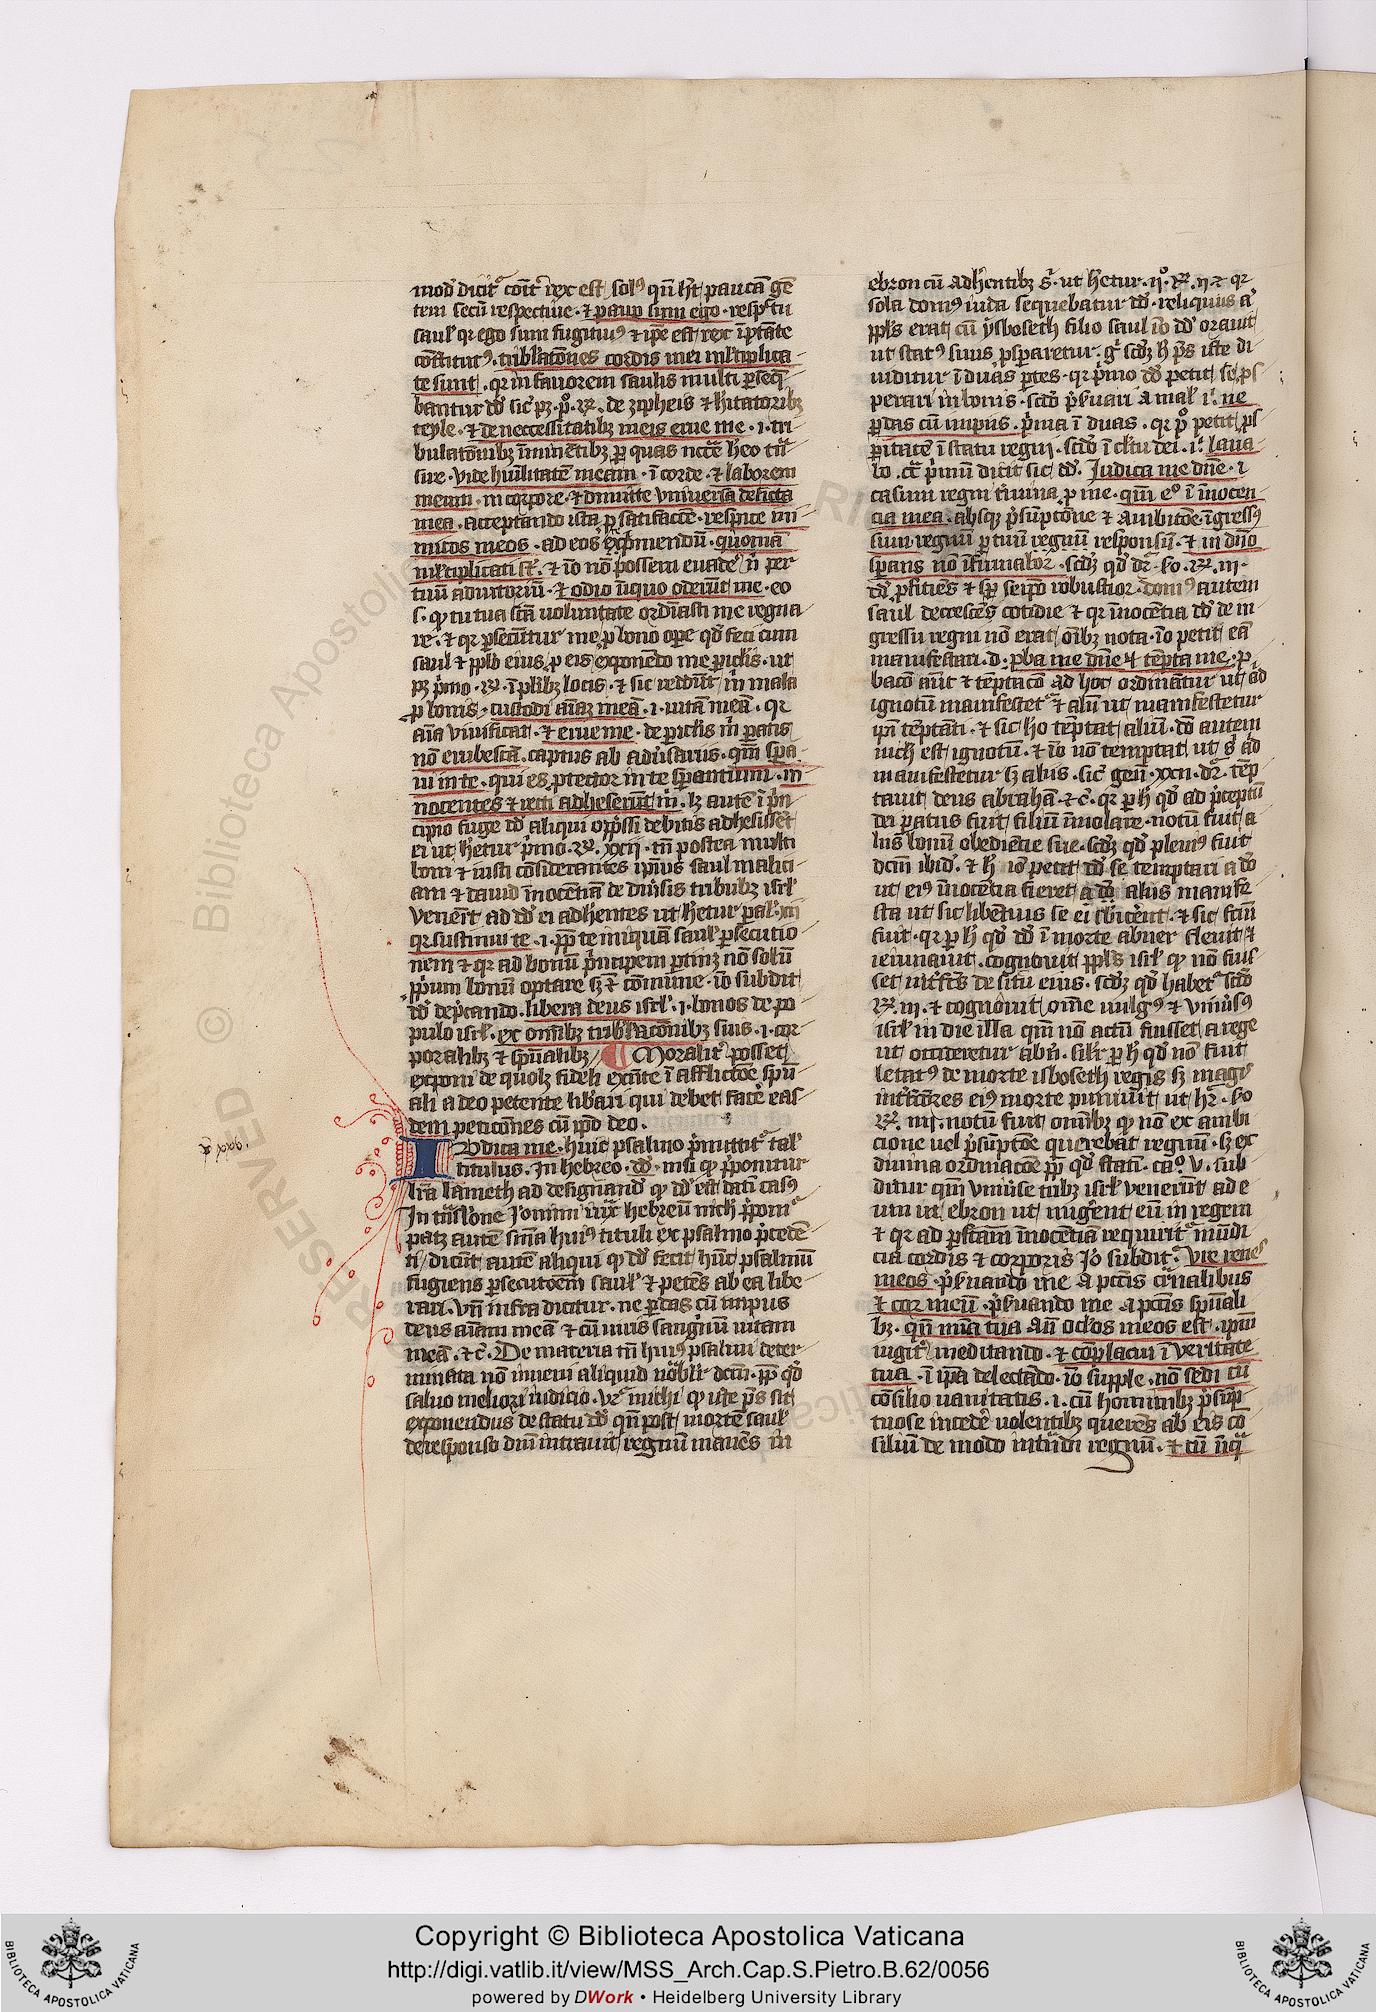 mod dicit' cont' rex est sol' qn ht pauca ge
tem secu respective · & paup sum ego · resptu
saul' qr ego sum fugitiu' & ipe est rex i ptate
constitut' · tribl'atones cordis mei m'ltiplica
te sunt · qr in favorem saulis multi pseq
bantur dd sic' pz · p° R'. de zipheis & hitatorib3
ceyle · & de neccessitatib3 meis erue me · i · tri
bulatonib3 iminetib3 p quas
sue · vide huilitate meam · i corde · & laborem
meum · in corpore · & dimitte vniversa delicta
mea · acceptando ista p satisfacce · respice ini
micos meos · ad eos
m'ltiplicati st · & io no possem evade' n per
tuu adiutoriu · & odio iniquo oderut me · eo
s · q tu tua sca voluntate ordiasti me regna
re · & qr psecutur me p bono ope qd feci cum
saul & pplo eius p eis exponedo me piclis · ut
pz pmo · R'. i plib3 locis · & sic reddut m mala
p bonis · custodi aiaz mea · i · vita mea · qr
aia vivificat · & erue me · de piclis m patis
no erubesca · captus ab adusariis · qm spa
vi in te · qui es ptector in te sperantium · in
nocentes & recti adheserut m · lz aute i prin
cipio fuge dd aliqui oppssi debitis adhesisset
ei ut hetur pmo · R'. xxii · tn postea multi
boni & iusti considerantes ipius saul malici
am & david inocentia de diusis tribub3 isrl'
venert ad dd ei adhentes ut hetur pal' · xii
qr sustinui te · i · pp te iniqua saul' psecutio
nem & qr ad bonu principem ptinz no solu
ppium bonu optare sz & comune · io subdit
dd depcando · libera deus isrl' · i · bonos de po
pulo isrl' · ex omib3 tribl'atonib3 suis · i · cor
poralib3 & spualib3 Moralit' posset
exponi de quolz fideli exnte i afflictoe spu
ali a deo petente libari qui debet face' eas
dem peticones cu ipo deo ·
IUdica me · huic psalmo pmittit' tal'
titulus · In hebreo · dd · nisi q pponitur
lra lameth ad designand q dd est dati casus
In tnslone Jonimi iux hebreu nich ppoit'
patz aute sma hui' tituli ex psalmo precede
ti / dicut aute aliqui q dd fecit huc psalmu
fugiens psecutoem saul' & petes ab ea libe
rari · vn infra dicitur · ne pdas cu impiis
deus aiam mea & cu viris sanguinu vitam
mea · &c · De materia tn hui' psalmi deter
minata no inveni aliquid dcm · pp qd
salvo meliori iudicio · vr michi q iste ps sit
exponendus de statu dd qn post morte saul'
de responso diui intravit regnu manes in
ebron cu adhentib3 s · ut hetur · ii° · R'. ii · & qr
sola dom' iuda sequebatur dd · reliquus a
ppls erat cu ysboseth filio saul io dd oravit
ut stat' suus psparetur · g scdz h ps iste di
viditur i duas ptes · qr pmo dd petit se ps
perari in bonis · scdo psuari a mal' i' · ne
pdas cu impiis · prima i duas · qr p° petit ps
peritate i statu regni · scdo i cltu dei · i' · lava
bo · ca primu dicit sic dd · Judica me dne · i
casum regni termina p me · qm ego i inocen
cia mea · absq psumptone & ambitoe ingress'
sum regnu p tuu regnu responsu · & in dno
sperans no ifirmabor · scdz qd dr · so · R'. iii ·
dd pficies & sp seipo robustior · dom' autem
saul decresces cotidie & qr inocentia dd de in
gressu regni no erat oib3 nota · io petit ea
manifestari · d · pba me dne & tepta me · p
baco aut & teptaco ad hoc ordinatur ut ad
ignotum manifestet' & aliu ut manifestetur
ipi teptati · & sic ho teptat aliu · do autem
nich est ignotu · & io no temptat ut s' ad
manifestetur sz aliis · sic' gen · xxii · dr · tep
tavit deus abraha · &c · qr p h qd ad preceptu
dei paratus fuit filiu imolare · notu fuit a
liis bonu obediencie sue · scdz qd plenius fuit
dcm ibid · & h io petit dd se temptari a do
ut ei' inocentia fieret a do aliis manife
sta ut sic libentius se ei sbicerent · & sic fcm
fuit · qr p h qd dd i morte abner flevit &
ieiunavit · cognovit ppls isrl' q no fuis
set intfcs de situ eius · scdz qd habet' scdo
R'. iii · & cognovit ome vulgus & vniusus
isrl' in die illa qm no actu fuisset a rege
ut occideretur abn · silr p h qd no fuit
letat' de morte isboseth regis sz magis
intfcores ei' morte punivit ut hr · so
R'. iiii · notu fuit omib3 q no ex ambi
cione vel psuptoe querebat regnu · sz ex
divina ordinacoe pp qd stati · ca° · v · sub
ditur qm vniuse tub3 isrl' venerut ad e
um in ebron ut iungent eu in regem
& qr ad pfctam inocentia requirit' mudi
cia cordis & corporis Jo subdit' · Vre renes
meos · psuando me a pctis carnalibus
& cor meu · psuando me a pctis spuali
b3 · qn mia tua an oclos meos est · ipam
iugit' meditando · & coplacui i veritate
tua · i ipa delectado · io supple · no sedi cu
consilio vanitatis · i · cu hominib3 psup
tuose incede' volentib3 queres ab eis co
siliu de modo intrandi regnu · & cu iniq
Copyright © Biblioteca Apostolica Vaticana
http://digi.vatlib.it/view/MSS_Arch.Cap.S.Pietro.B.62/0056
powered by DWork • Heidelberg University Library
BIBLIOTECA APOSTOLICA VATICANA
BIBLIOTECA APOSTOLICA VATICANA